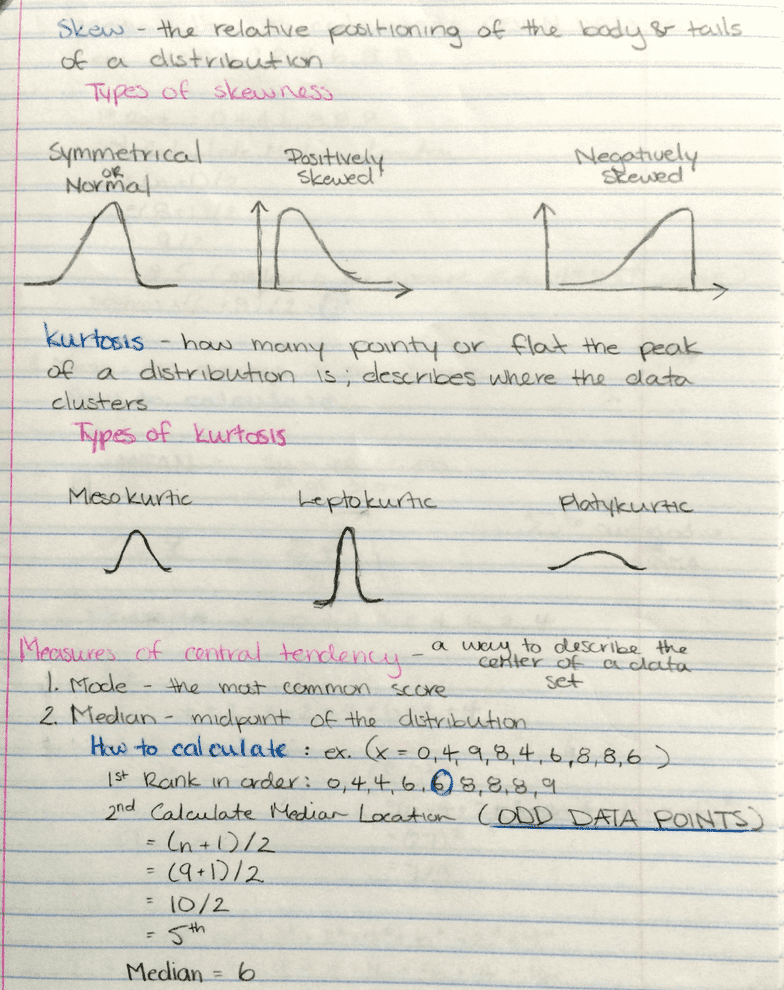 Skew - the relative positioning of the body & tails
of a distribution
Types of skewness
Symmetrical
or
Normal
Positively
Skewed
Negatively
Skewed
Kurtosis - how many pointy or flat the peak
of a distribution is; describes where the data
clusters
Types of kurtosis
Mesokurtic
Leptokurtic
Platykurtic
Measures of central tendency - a way to describe the
center of a data
set
1. Mode - the most common score
2. Median - midpoint of the distribution
How to calculate : ex. (x = 0,4,9,8,4,6,8,8,6 )
1st Rank in order: 0,4,4,6,6,8,8,8,9
2nd Calculate Median Location (ODD DATA POINTS)
= (n+1)/2
= (9+1)/2
= 10/2
= 5th
Median = 6